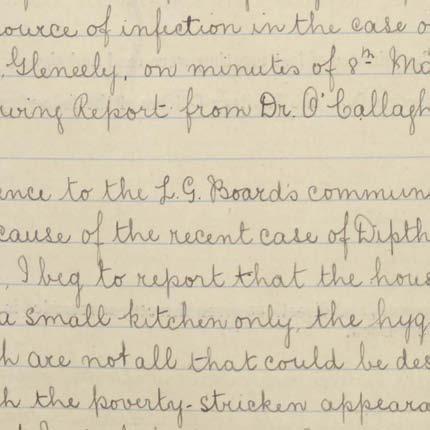 ource of infection in the case o
. Gleneely, on minutes of 8th Ma
wing Report from Dr. O'Callagh
ence to the L.G. Board's commun
cause of the recent case of Dipth
, I beg to report that the hous
a small kitchen only, the hyg
h are not all that could be des
h the poverty-stricken appeara